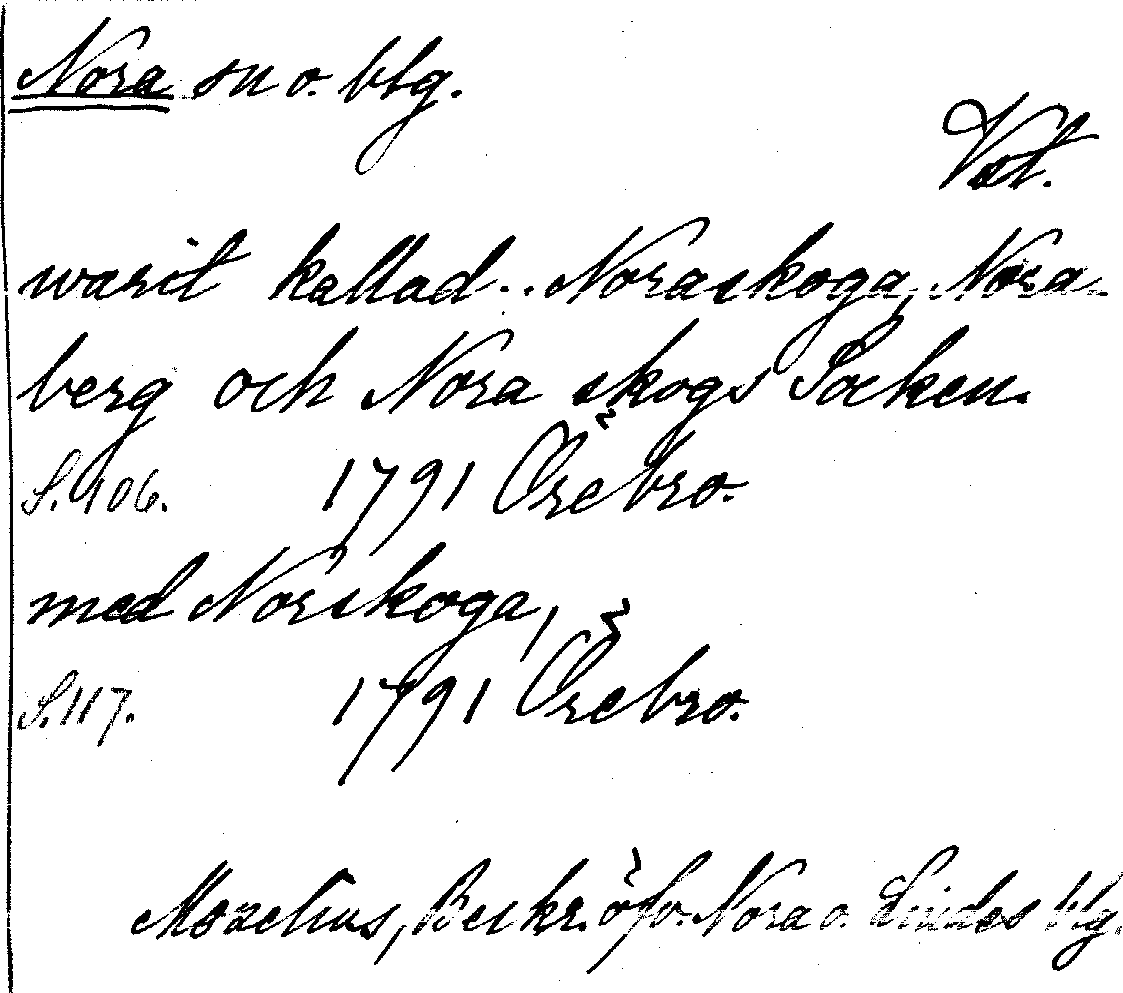 Nora sn o. btg.
Vst.
warit kallad .. Noraskoga, Nora-
berg och Nora skogs Socken.
S. 106. 1791 Örebro.
med Norskoga,
S. 117. 1791 Örebro.
Morelius, Beskr. öfv. Nora o. Lindes btg.